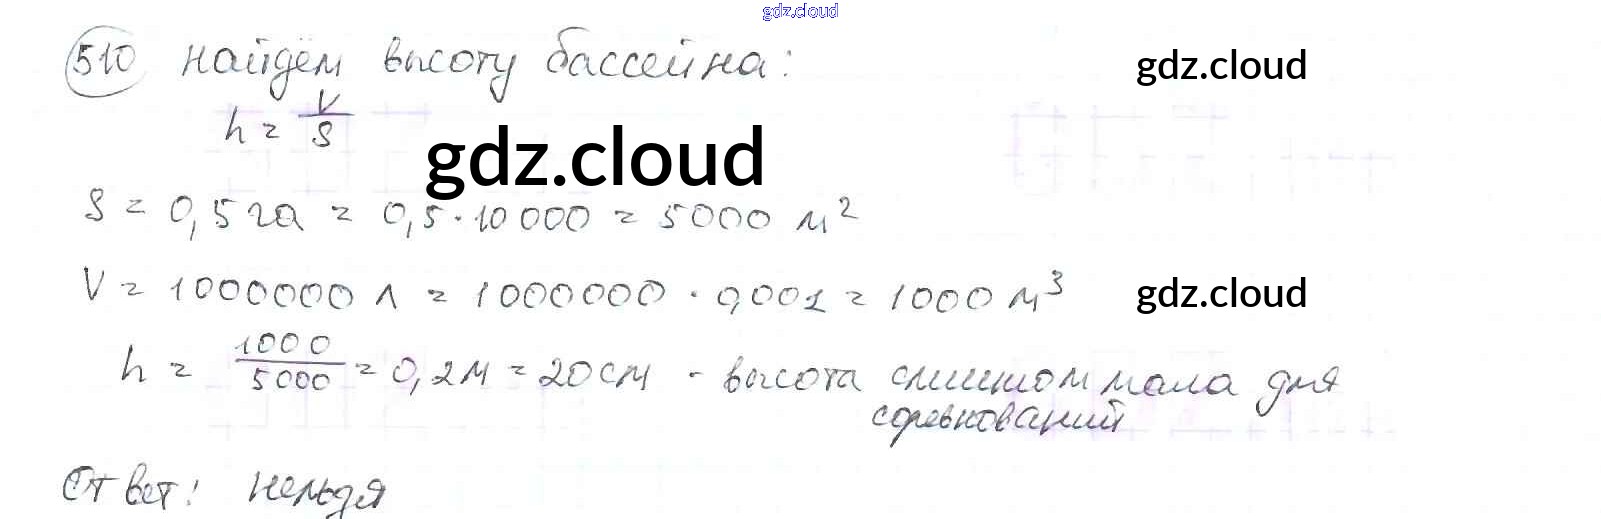 gdz.cloud
510 найдём высоту бассейна:
gdz.cloud
h = V/S
gdz.cloud
S = 0,5 га = 0,5 · 10 000 = 5000 м²
V = 1000000 л = 1000000 · 0,001 = 1000 м³
gdz.cloud
h = 1000/5000 = 0,2м = 20см - высота слишком мала для
соревнований
Ответ: нельзя